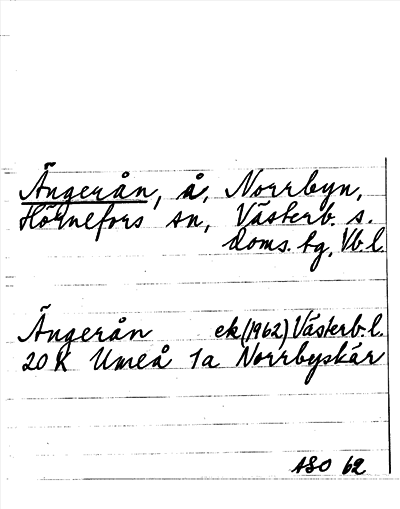 Ängerån, å, Norrbyn,
Hörnefors sn, Västerb. s.
doms. tg, Vb. l.
Ängerån ek (1962) Västerb. l.
20 K Umeå 1a Norrbyskär
ASO 62